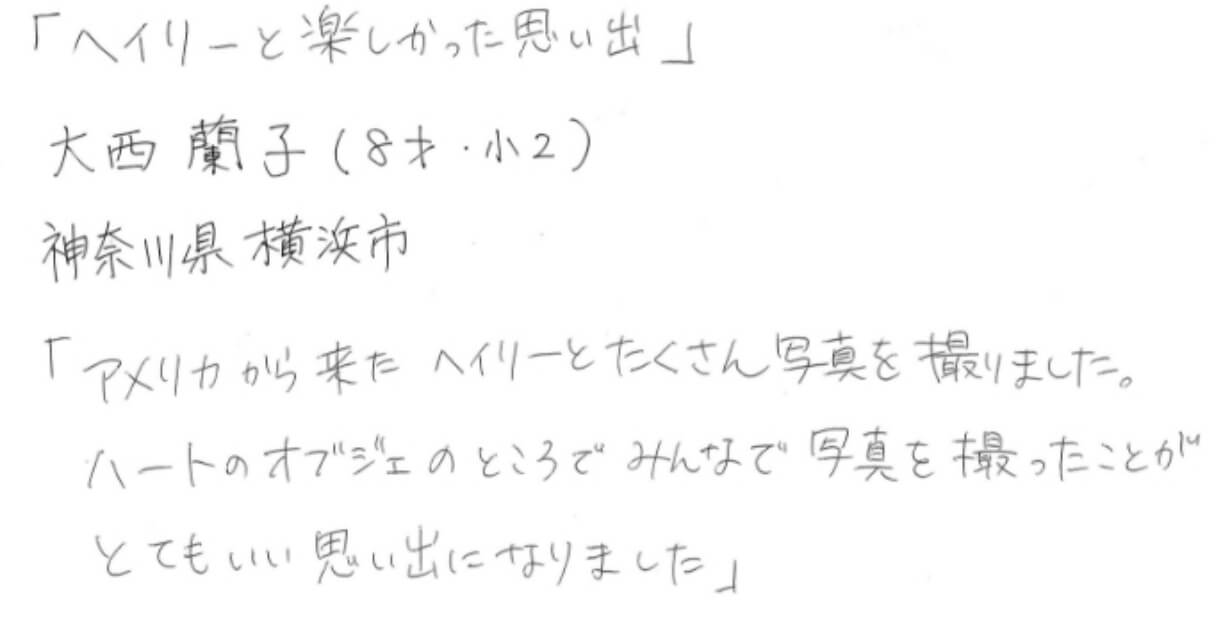 「ヘイリーと楽しかった思い出」
大西 蘭子(8才・小2)
神奈川県 横浜市
「アメリカから来た ヘイリーとたくさん写真を撮りました。
ハートのオブジェのところでみんなで写真を撮ったことが
とてもいい思い出になりました」